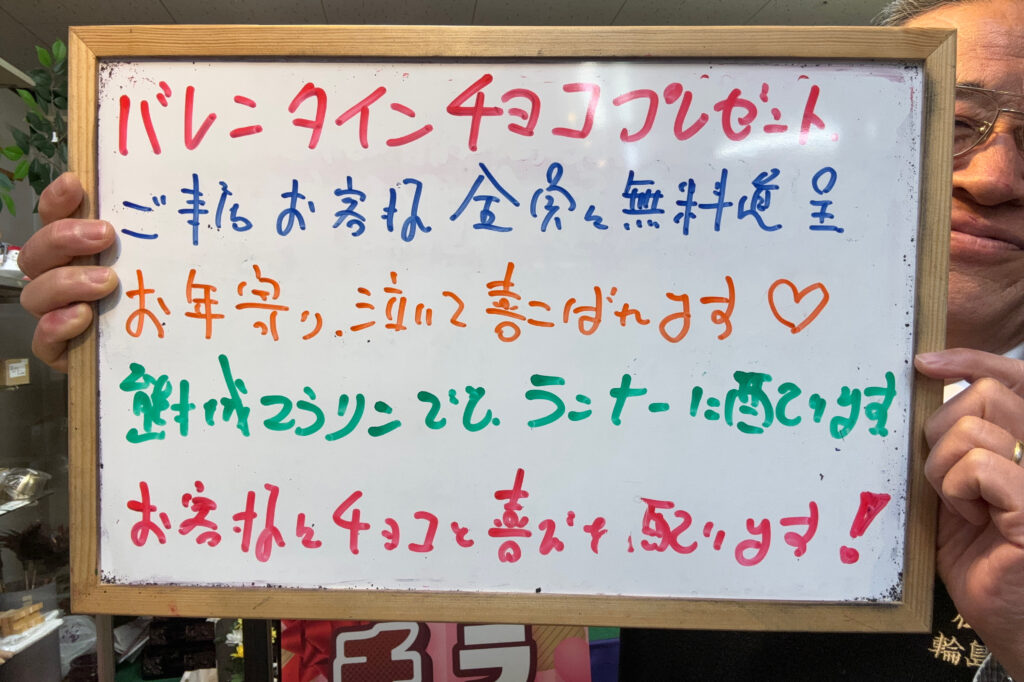 バレンタインチョコプレゼント
ご来店お客様全員に無料進呈
お年寄り、泣いて喜こばれます♡
マラソンでも、ランナーに配ります
お客様にチョコと喜びを配ります!
輪島